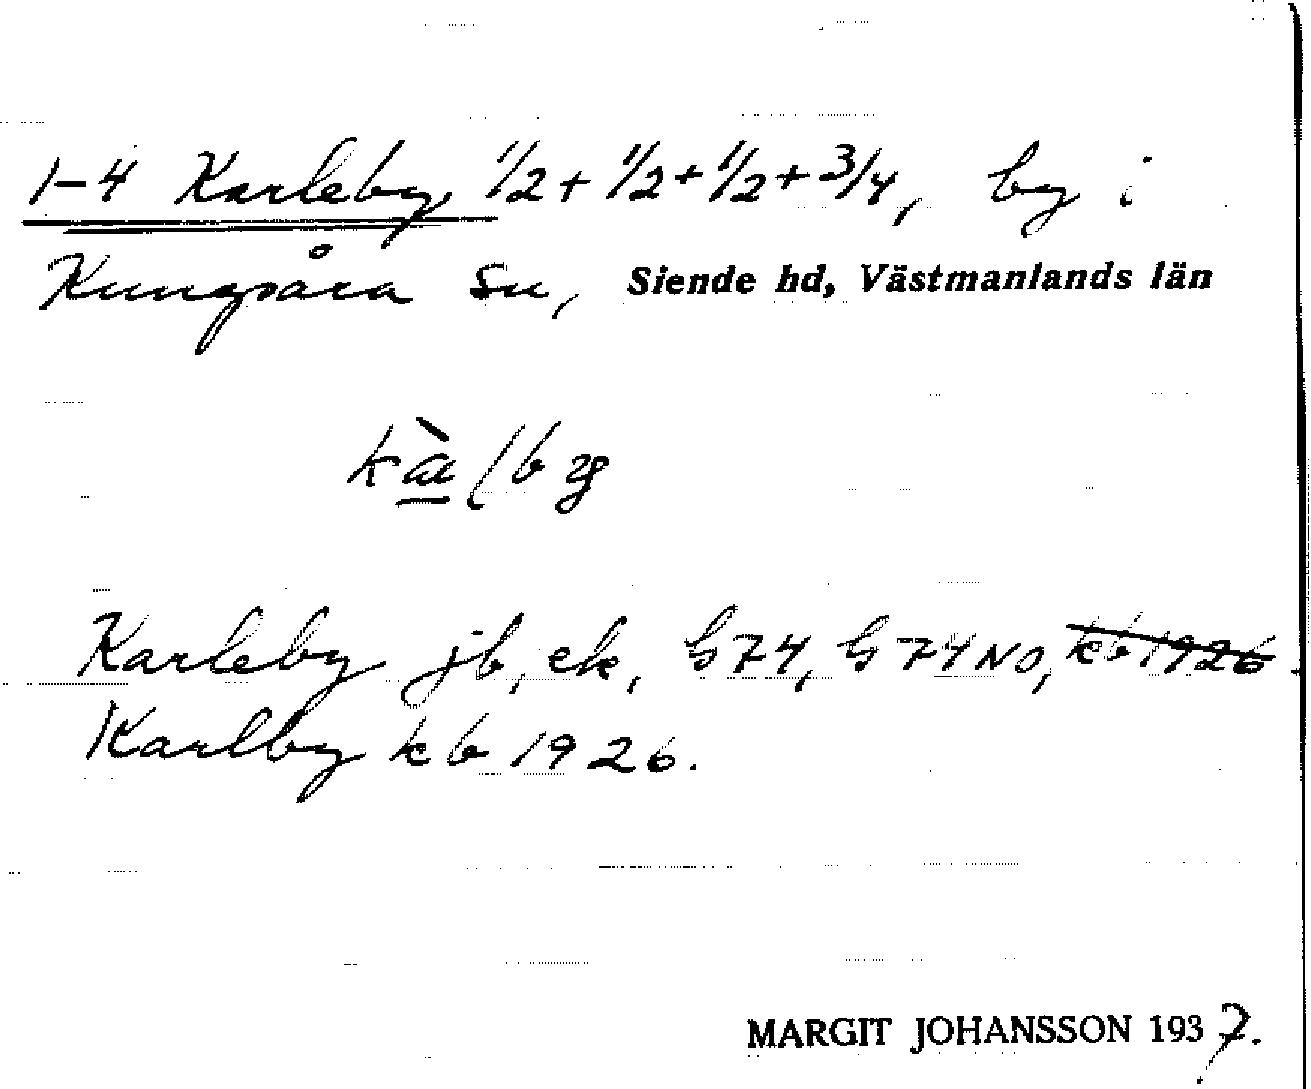 1-4 Karleby 1/2 + 1/2 + 1/2 + 3/4, by i
Kungsåra sn, Siende hd, Västmanlands län
Karleby jb, ek, G 74, G 74 NO, kb 1926
Karlby kb 1926.
MARGIT JOHANSSON 1937.